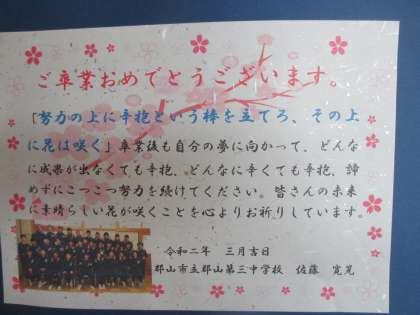 ご卒業おめでとうございます。
「努力の上に辛抱という棒を立てろ、その上
に花は咲く」卒業後も自分の夢に向かって、どんな
に成果が出なくても辛抱、どんなに辛くても辛抱、諦
めずにこつこつ努力を続けてください。皆さんの未来
に素晴らしい花が咲くことを心よりお祈りしています。
令和二年　三月吉日
郡山市立郡山第三中学校　佐藤　寛晃